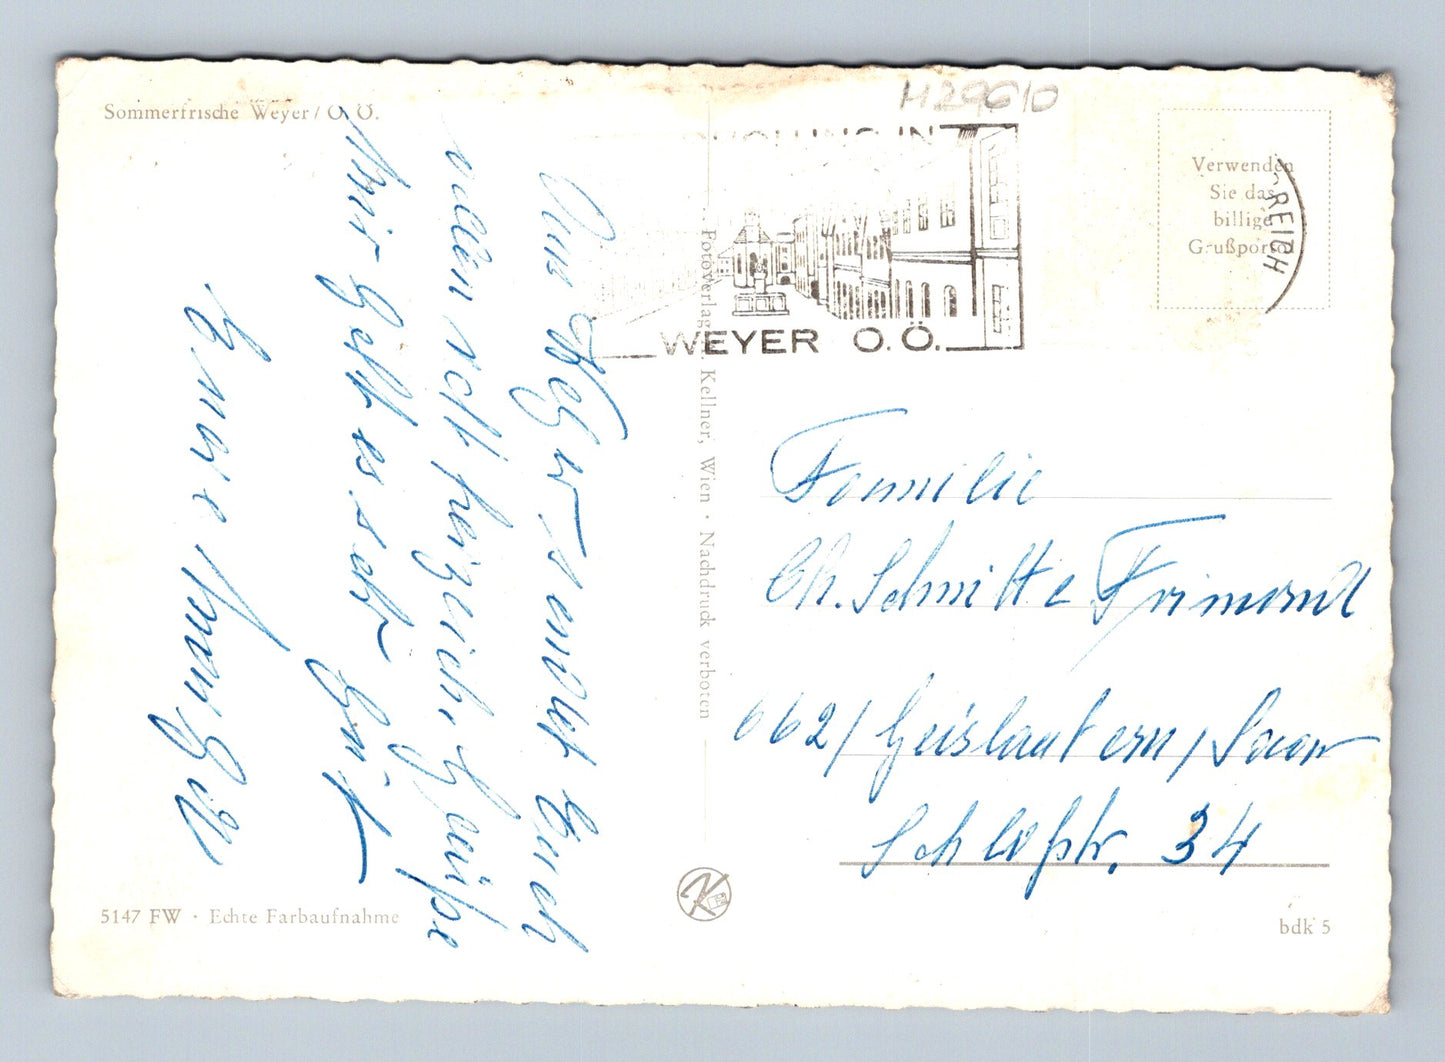 Sommerfrische Weyer / O. Ö.
H29610
WEYER O.Ö.
Verwenden
Sie das
billige
Grußporto
REICH
Aus Weyer sendet Euch
allen recht herzliche Grüße
mir geht es sehr gut
Eure
Fotoverlag Kellner, Wien · Nachdruck verboten
Familie
Ch. Schmitt e Frimond
662 / Geislautern, Saar
Schloßstr. 34
5147 FW · Echte Farbaufnahme
K
bdk 5